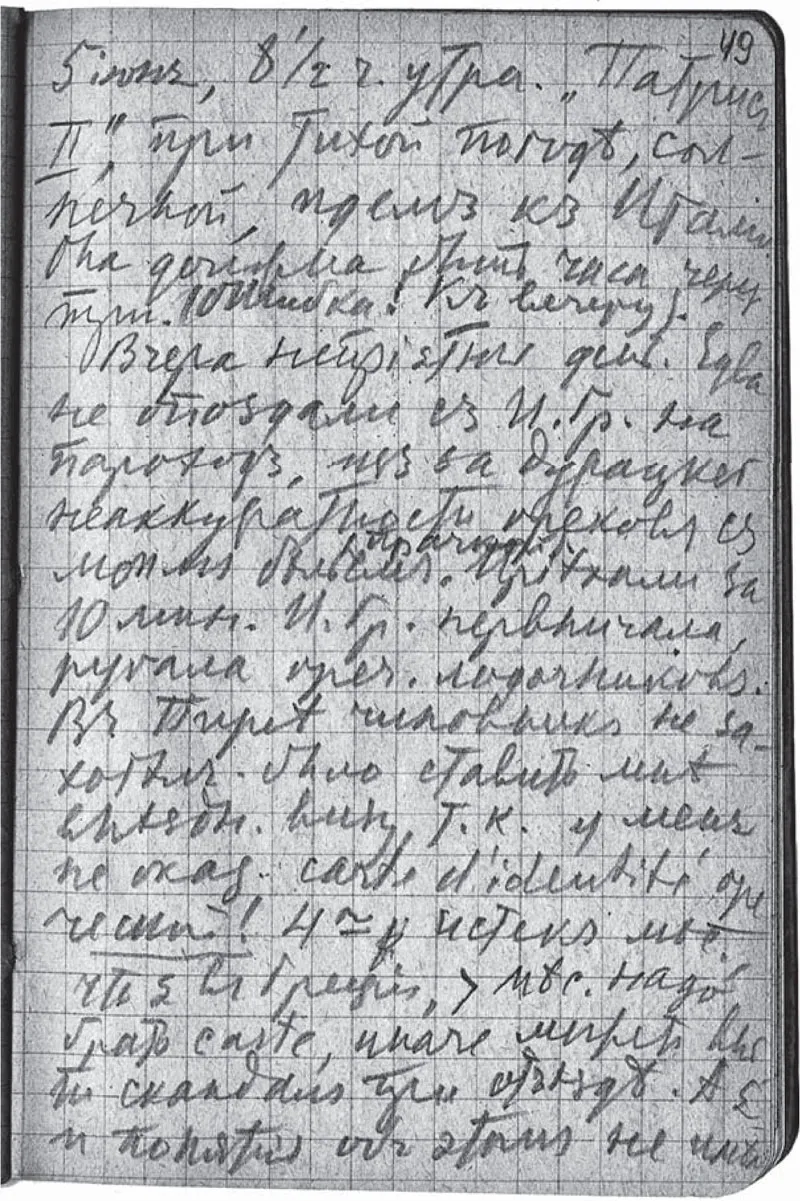 49
5 іюня, 8 1/2 ч. утра. „Патрисъ
II", при тихой погодѣ, сол-
нечной, идемъ къ Италіи
Она должна быть часа черезъ
три. (Ошибка! Къ вечеру).
Вчера непріятный день. Едва
не опоздали съ И. Гр. на
пароходъ, изъ за дурацкой
неаккуратности грековъ съ
моимъ бѣльемъ. (прачешной) Пріѣхали за
10 мин. И. Гр. нервничала,
ругала греч. лодочниковъ.
Въ Пиреѣ чиновникъ не за-
хотѣлъ было ставить мнѣ
выѣздн. визу, т. к. у меня
не оказ. carte d'identité гре
ческой! 4го истекъ мѣс.,
что я въ Греціи, > мѣс. надо
брать carte, иначе можетъ вы
ти скандалъ при отъѣздѣ. А я
и понятія объ этомъ не имѣ